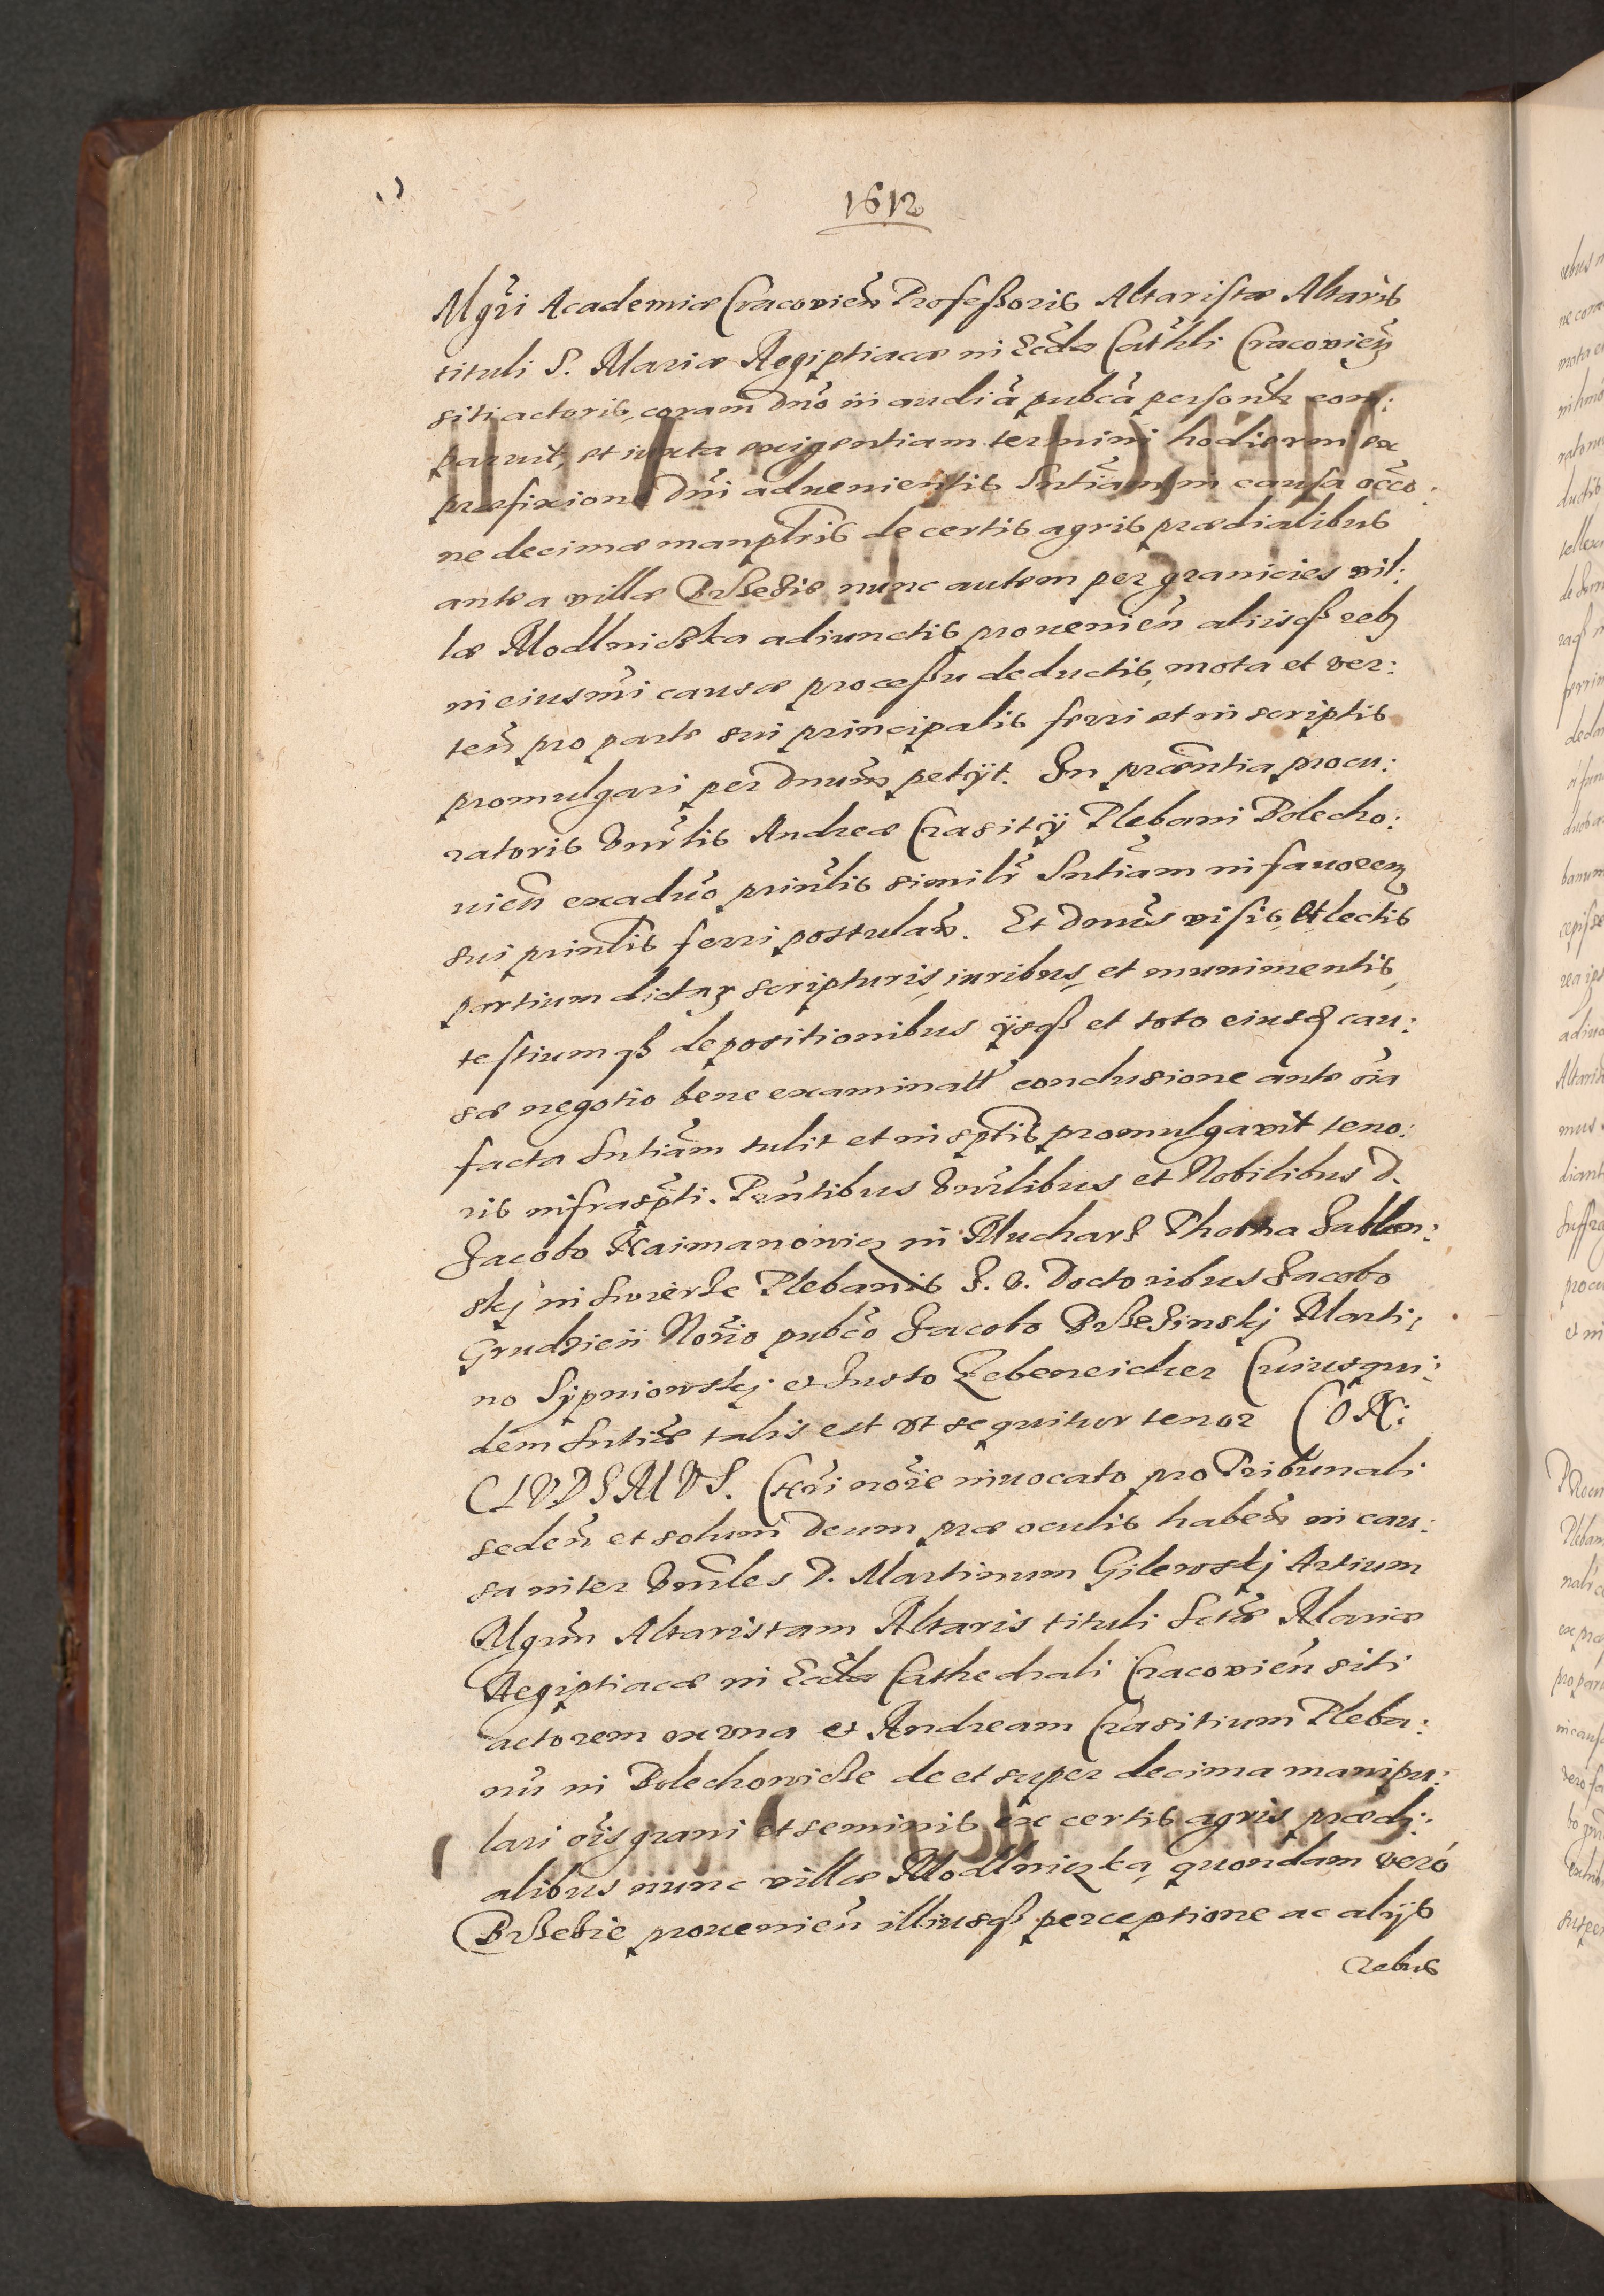 1612
Mgri Academiæ Cracovień Professoris Altaristæ Altaris
tituli S. Mariæ Aegiptiacæ in Eccła Cathli Cracovień
siti actoris, coram Dno in audia pubca personlr com:
paruit, et iuxta exigentiam termini hodierni ex
præfixione Dni aduenientis Sntiam in causa occo:
ne decimæ manplris de certis agris prædialibus
antea villæ Brzezie nunc autem per granicies vil:
læ Modlniczka adiunctis prouenień alijsqz rebz
in eiusmi causæ processu deductis, mota et ver:
teń pro parte sui principalis ferri et in scriptis
promulgari per Dnum petijt. In præsentia procu:
ratoris Vnrlis Andreæ Crasitij Plebani Bolecho:
uień ex aduo prinlis similr Sntiam in fauorem
sui prinlis ferri postulań. Et Dnus visis, et lectis
partium dictarz scripturis, iuribus, et munimentis,
testiumqz depositionibus ijsqz et toto eiusd cau:
sæ negotio bene examinatt conclusione ante oia
facta Sntiam tulit et in sptis promulgavit teno:
ris infraspti. Pntibus Vnrlibus et Nobilibus D.
Jacobo Naimanowicz in Mucharz Thoma Jablon:
skj in Zwierze Plebanis J. V. Doctoribus Jacobo
Grudzień Norio pubco Jacobo Brzezinskj Marti:
no Sypniowskj et Justo Zebeneicher Cuiusqui:
dem Sntiæ talis est vt sequitur tenor CON:
CLVDIMVS. Chri noie inuocato pro Tribunali
sedeń et solum Deum præ oculis habeń in cau:
sa inter Vnrles D. Martinum Gilewskj Artium
Mgrum Altaristam Altaris tituli Sctæ Mariæ
Aegiptiacæ in Eccła Cathedrali Cracovień siti
actorem ex vna et Andream Crasitium Pleba:
nu in Bolechowicze de et super decima manipu:
lari ois grani et seminis ex certis agris prædi:
alibus nunc villæ Modlniczka, quondam veró
Brzezie prouenień illiusqz perceptione ac alijs
rebus